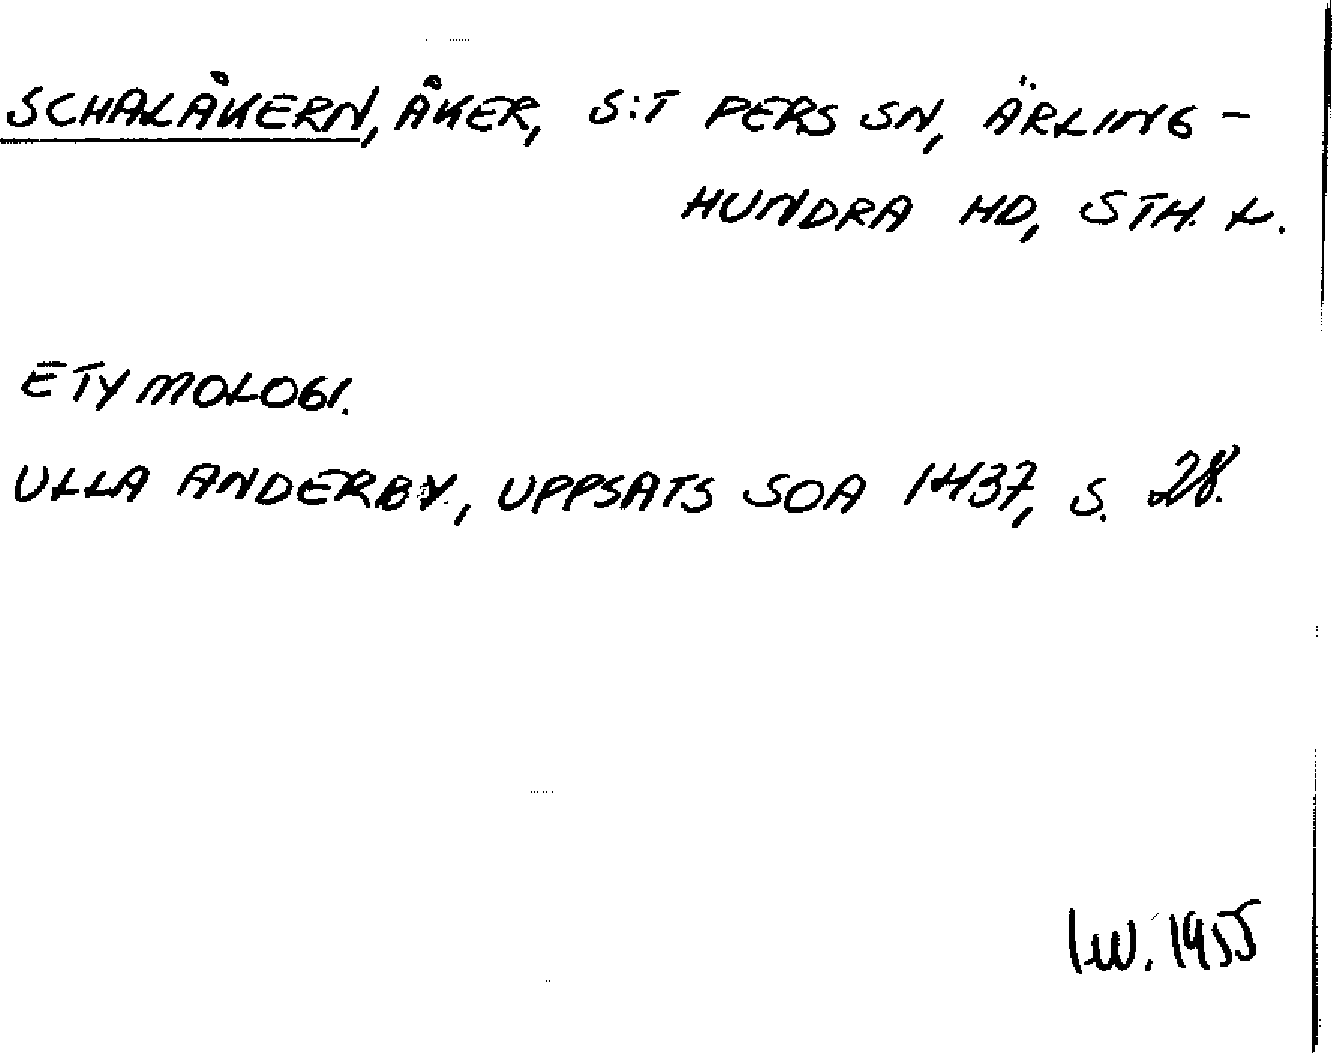 SCHALÅKERN, ÅKER, S:T PERS SN, ÄRLING-
HUNDRA HD, STH. L.
ETYMOLOGI.
ULLA ANDERBY, UPPSATS SOA 1437, S. 28.
IW. 1955